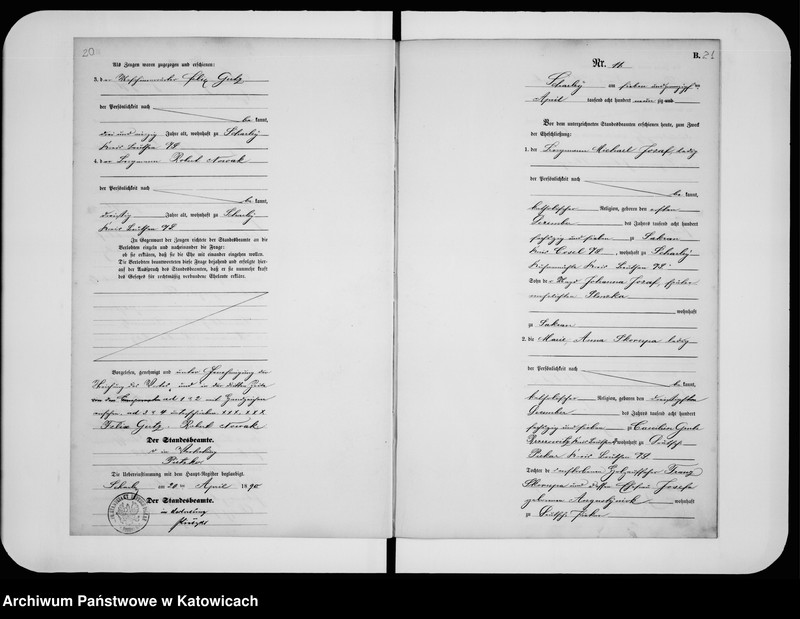 20
Als Zeugen waren zugezogen und erschienen:
3. der Maschinenwärter Felix Gutz
der Persönlichkeit nach
be kannt,
drei und vierzig Jahre alt, wohnhaft zu Scharley
Kreis Beuthen
4. der Bergmann Robert Nowak
der Persönlichkeit nach
be kannt,
dreißig Jahre alt, wohnhaft zu Scharley
Kreis Beuthen
In Gegenwart der Zeugen richtete der Standesbeamte an die
Verlobten einzeln und nacheinander die Frage:
ob sie erklären, daß sie die Ehe mit einander eingehen wollen.
Die Verlobten beantworteten diese Frage bejahend und erfolgte hier-
auf der Ausspruch des Standesbeamten, daß er sie nunmehr kraft
des Gesetzes für rechtmäßig verbundene Eheleute erkläre.
Vorgelesen, genehmigt und unter Genehmigung der
und in der dritten Zeile
ad 1 & 2 mit Handzeichen
versehen, ad 3 & 4 unterschrieben XXX. XXX
Felix Gutz. Robert Nowak
Der Standesbeamte.
in Vertretung
Die Uebereinstimmung mit dem Haupt-Register beglaubigt.
Scharley am 28ten April 1890
Der Standesbeamte.
in Vertretung
B. 21
Nr. 11
Scharley am sieben und zwanzigsten
April tausend acht hundert neunzig und
Vor dem unterzeichneten Standesbeamten erschienen heute, zum Zweck
der Eheschließung:
1. der Bergmann Michael Jozaf, ledig
der Persönlichkeit nach
be kannt,
katholischer Religion, geboren den ersten
Dezember des Jahres tausend acht hundert
sechszig und sieben zu Sakrau
Kreis Cosel, wohnhaft zu Scharley
Kreis Beuthen
Sohn der Magd Johanna Jozaf, später
verehelichten
wohnhaft
zu Sakrau
2. die Marie Anna Skorupa ledig
der Persönlichkeit nach
be kannt,
katholischer Religion, geboren den dreißigsten
Dezember des Jahres tausend acht hundert
sechszig und sieben zu
Kreis Beuthen wohnhaft zu Deutsch
Piekar Kreis Beuthen
Tochter des verstorbenen Franz
Skorupa und dessen Ehefrau Josefa
geborenen wohnhaft
zu Deutsch Piekar
Archiwum Państwowe w Katowicach